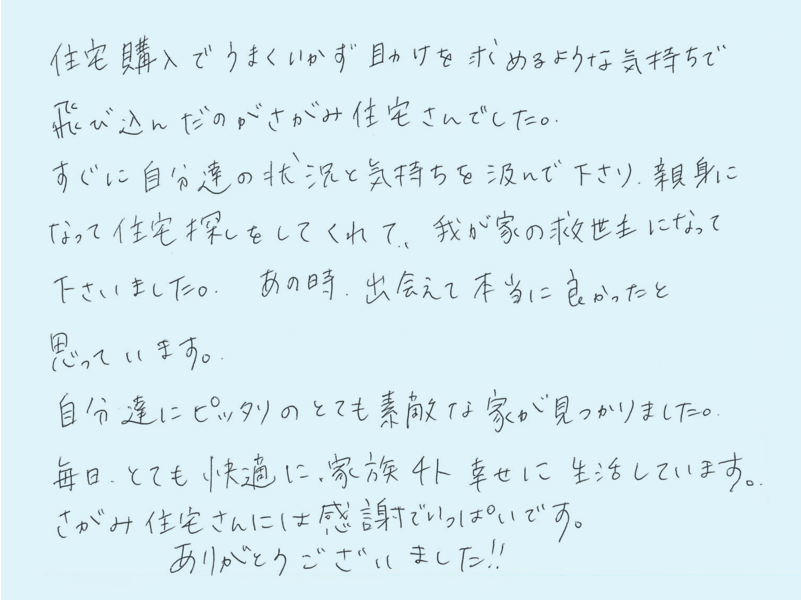 住宅購入でうまくいかず助けを求めるような気持ちで
飛び込んだのがさがみ住宅さんでした。
すぐに自分達の状況と気持ちを汲んで下さり、親身に
なって住宅探しをしてくれて、我が家の救世主になって
下さいました。 あの時、出会えて本当に良かったと
思っています。
自分達にピッタリのとても素敵な家が見つかりました。
毎日、とても快適に、家族4人幸せに生活しています。
さがみ住宅さんには感謝でいっぱいです。
ありがとうございました!!